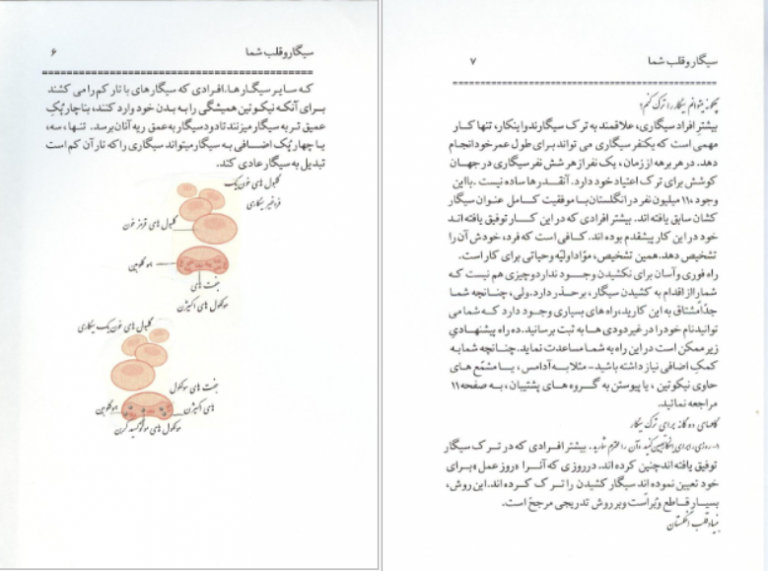 سیگار و قلب شما ۶
که سایر سیگارها. افرادی که سیگارهای با تار کم را می کشند
برای آنکه نیکوتین همیشگی را به بدن خود وارد کنند، بناچار پُک
عمیق تر به سیگار میزنند تا دود سیگار به عمق ریه آنان برسد. تنها، سه،
یا چهار پُک اضافی به سیگار میتواند سیگاری را که تار آن کم است
تبدیل به سیگار عادی کند.
گلبول های خون یک
فرد غیر سیگاری
گلبول های قرمز خون
هموگلوبین
جفت های
مولکول های اکسیژن
گلبول های خون یک سیگاری
جفت های مولکول
های اکسیژن
هموگلوبین
مولکول های مونوکسید کربن
سیگار و قلب شما ۷
چگونه میتوانم سیگار را ترک کنم؟
بیشتر افراد سیگاری، علاقمند به ترک سیگارند و اینکار، تنها کار
مهمی است که یکنفر سیگاری می تواند برای طول عمر خود انجام
دهد. در هر برهه از زمان، یک نفر از هر شش نفر سیگاری در جهان
کوشش برای ترک اعتیاد خود دارد. آنقدرها ساده نیست. با این
وجود ۱۱۰ میلیون نفر در انگلستان با موفقیت کامل عنوان سیگار
کشان سابق یافته اند. بیشتر افرادی که در این کار توفیق یافته اند
خود در این کار پیشقدم بوده اند. کافی است که فرد، خودش آن را
تشخیص دهد. همین تشخیص، موّاد اولیّه و حیاتی برای کار است.
راه فوری و آسان برای نکشیدن وجود ندارد و چیزی هم نیست که
شما را از اقدام به کشیدن سیگار، بر حذر دارد. ولی، چنانچه شما
جدّاً مشتاق به این کارید، راه های بسیاری وجود دارد که شما می
توانید نام خود را در غیر دودی ها به ثبت برسانید. ده راه پیشنهادی
زیر ممکن است در این راه به شما مساعدت نماید. چنانچه شما به
کمکِ اضافی نیاز داشته باشید - مثلا به آدامس، یا مشمّع های
حاوی نیکوتین، یا پیوستن به گروه های پشتیبان، به صفحه ۱۱
مراجعه نمائید.
گامهای ده گانه برای ترک سیگار
۱- روزی را برای اینکار تعیین کنید و آن را محترم شمارید. بیشتر افرادی که در ترک سیگار
توفیق یافته اند چنین کرده اند. در روزی که آنرا «روز عمل» برای
خود تعیین نموده اند سیگار کشیدن را ترک کرده اند. این روش،
بسیار قاطع و بُرّاست و بر روش تدریجی مرجحّ است.
بنیاد قلب انگلستان